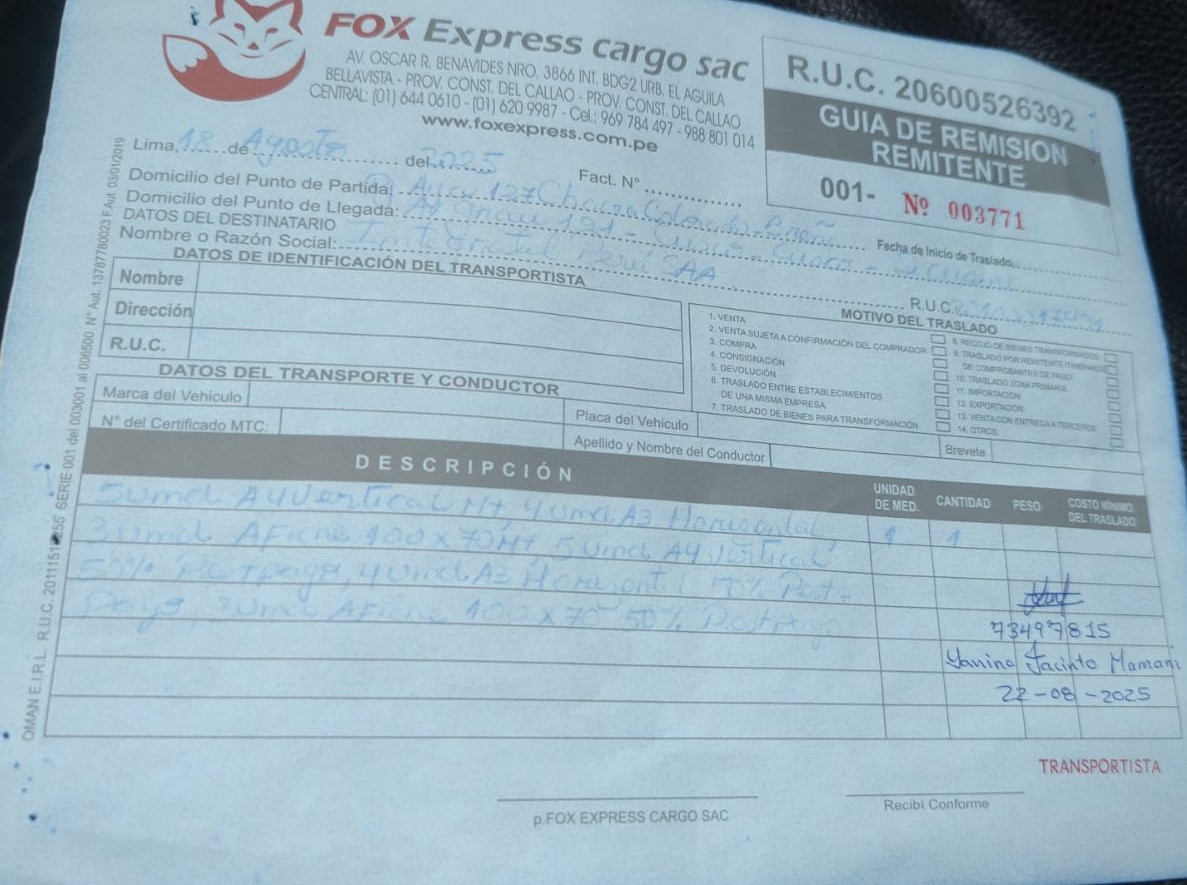 FOX Express cargo sac
AV. OSCAR R. BENAVIDES NRO. 3866 INT. BDG2 URB. EL AGUILA
BELLAVISTA - PROV. CONST. DEL CALLAO - PROV. CONST. DEL CALLAO
CENTRAL: (01) 644 0610 - (01) 620 9987 - Cel.: 969 784 497 - 988 801 014
www.foxexpress.com.pe
R.U.C. 20600526392
GUIA DE REMISION
REMITENTE
001- Nº 003771
Lima, 18 de Agosto del 2025 Fact. N°
Domicilio del Punto de Partida: 127 Colorado - Breña
Fecha de Inicio de Traslado:
Domicilio del Punto de Llegada: Av Grau 191 - Cusco - Cusco - Sicuani
DATOS DEL DESTINATARIO
Nombre o Razón Social: Integratel Perú SAA R.U.C.
DATOS DE IDENTIFICACIÓN DEL TRANSPORTISTA
Nombre
Dirección
R.U.C.
MOTIVO DEL TRASLADO
1. VENTA
2. VENTA SUJETA A CONFIRMACIÓN DEL COMPRADOR
3. COMPRA
4. CONSIGNACIÓN
5. DEVOLUCIÓN
6. TRASLADO ENTRE ESTABLECIMIENTOS
DE UNA MISMA EMPRESA
7. TRASLADO DE BIENES PARA TRANSFORMACIÓN
8. RECOJO DE BIENES TRANSFORMADOS
9. TRASLADO POR REMITENTE ITINERANTE
DE COMPROBANTES DE PAGO
10. TRASLADO ZONA PRIMARIA
11. IMPORTACIÓN
12. EXPORTACIÓN
13. VENTA CON ENTREGA A TERCEROS
14. OTROS
DATOS DEL TRANSPORTE Y CONDUCTOR
Marca del Vehiculo
Placa del Vehiculo
N° del Certificado MTC:
Apellido y Nombre del Conductor
Brevete
DESCRIPCIÓN
UNIDAD DE MED.
CANTIDAD
PESO
COSTO MÍNIMO DEL TRASLADO
5 umd A4 vertical Mt, 4 umd. A3 Horizontal, 1 1
3 umd Afiche 100 x 70 Mt, 5 umd A4 vertical
50% Postpago, 4 umd A3 Horizontal 50% Post-
Pago, 3 umd Afiche 100 x 70 50% Postpago
73497815
Yanina Jacinto Mamani
22-08-2025
TRANSPORTISTA
p.FOX EXPRESS CARGO SAC
Recibi Conforme
SERIE 001 del 003001 al 006500 N° Aut. 13787780023 F.Aut. 03/01/2019